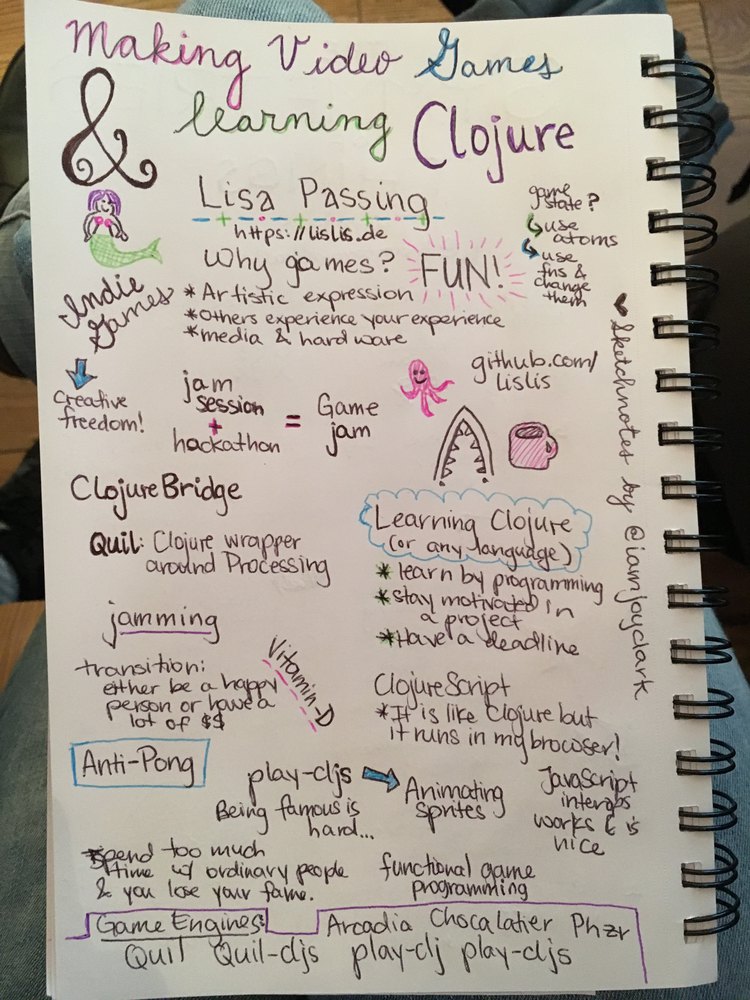 Making Video Games
& learning Clojure
Lisa Passing
https://lislis.de
game
state?
use
atoms
use
fns &
change
them
Why games?
FUN!
* Artistic expression
* Others experience your experience
* media & hardware
Indie
Games
Creative
freedom!
jam
session
+
hackathon
=
Game
jam
github.com/
lislis
♥ Sketchnotes by @iamjoyclark
ClojureBridge
Quil: Clojure wrapper
around Processing
jamming
transition:
either be a happy
person or have a
lot of $$
Vitamin-D
Learning Clojure
(or any language)
* learn by programming
* stay motivated in
a project
* Have a deadline
ClojureScript
* It is like Clojure but
it runs in my browser!
Anti-Pong
play-cljs
Animating
sprites
JavaScript
interops
works & is
nice
Being famous is
hard...
* spend too much
time w/ ordinary people
& you lose your fame.
functional game
programming
Game Engines:
Arcadia Chocalatier Phzr
Quil Quil-cljs play-clj play-cljs